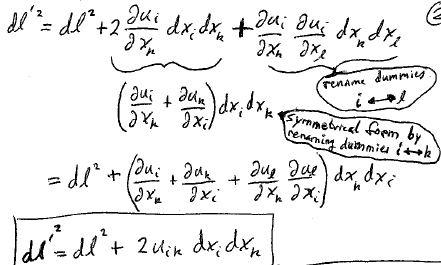 dl'² = dl² + 2 ∂uᵢ/∂xₖ dxᵢ dxₖ + ∂uᵢ/∂xₖ ∂uᵢ/∂xₗ dxₖ dxₗ
rename dummies
i ↔ l
(∂uᵢ/∂xₖ + ∂uₖ/∂xᵢ) dxᵢ dxₖ
symmetrical form by
renaming dummies i↔k
= dl² + (∂uᵢ/∂xₖ + ∂uₖ/∂xᵢ + ∂uₗ/∂xₖ ∂uₗ/∂xᵢ) dxₖ dxᵢ
dl'² = dl² + 2uᵢₖ dxᵢ dxₖ